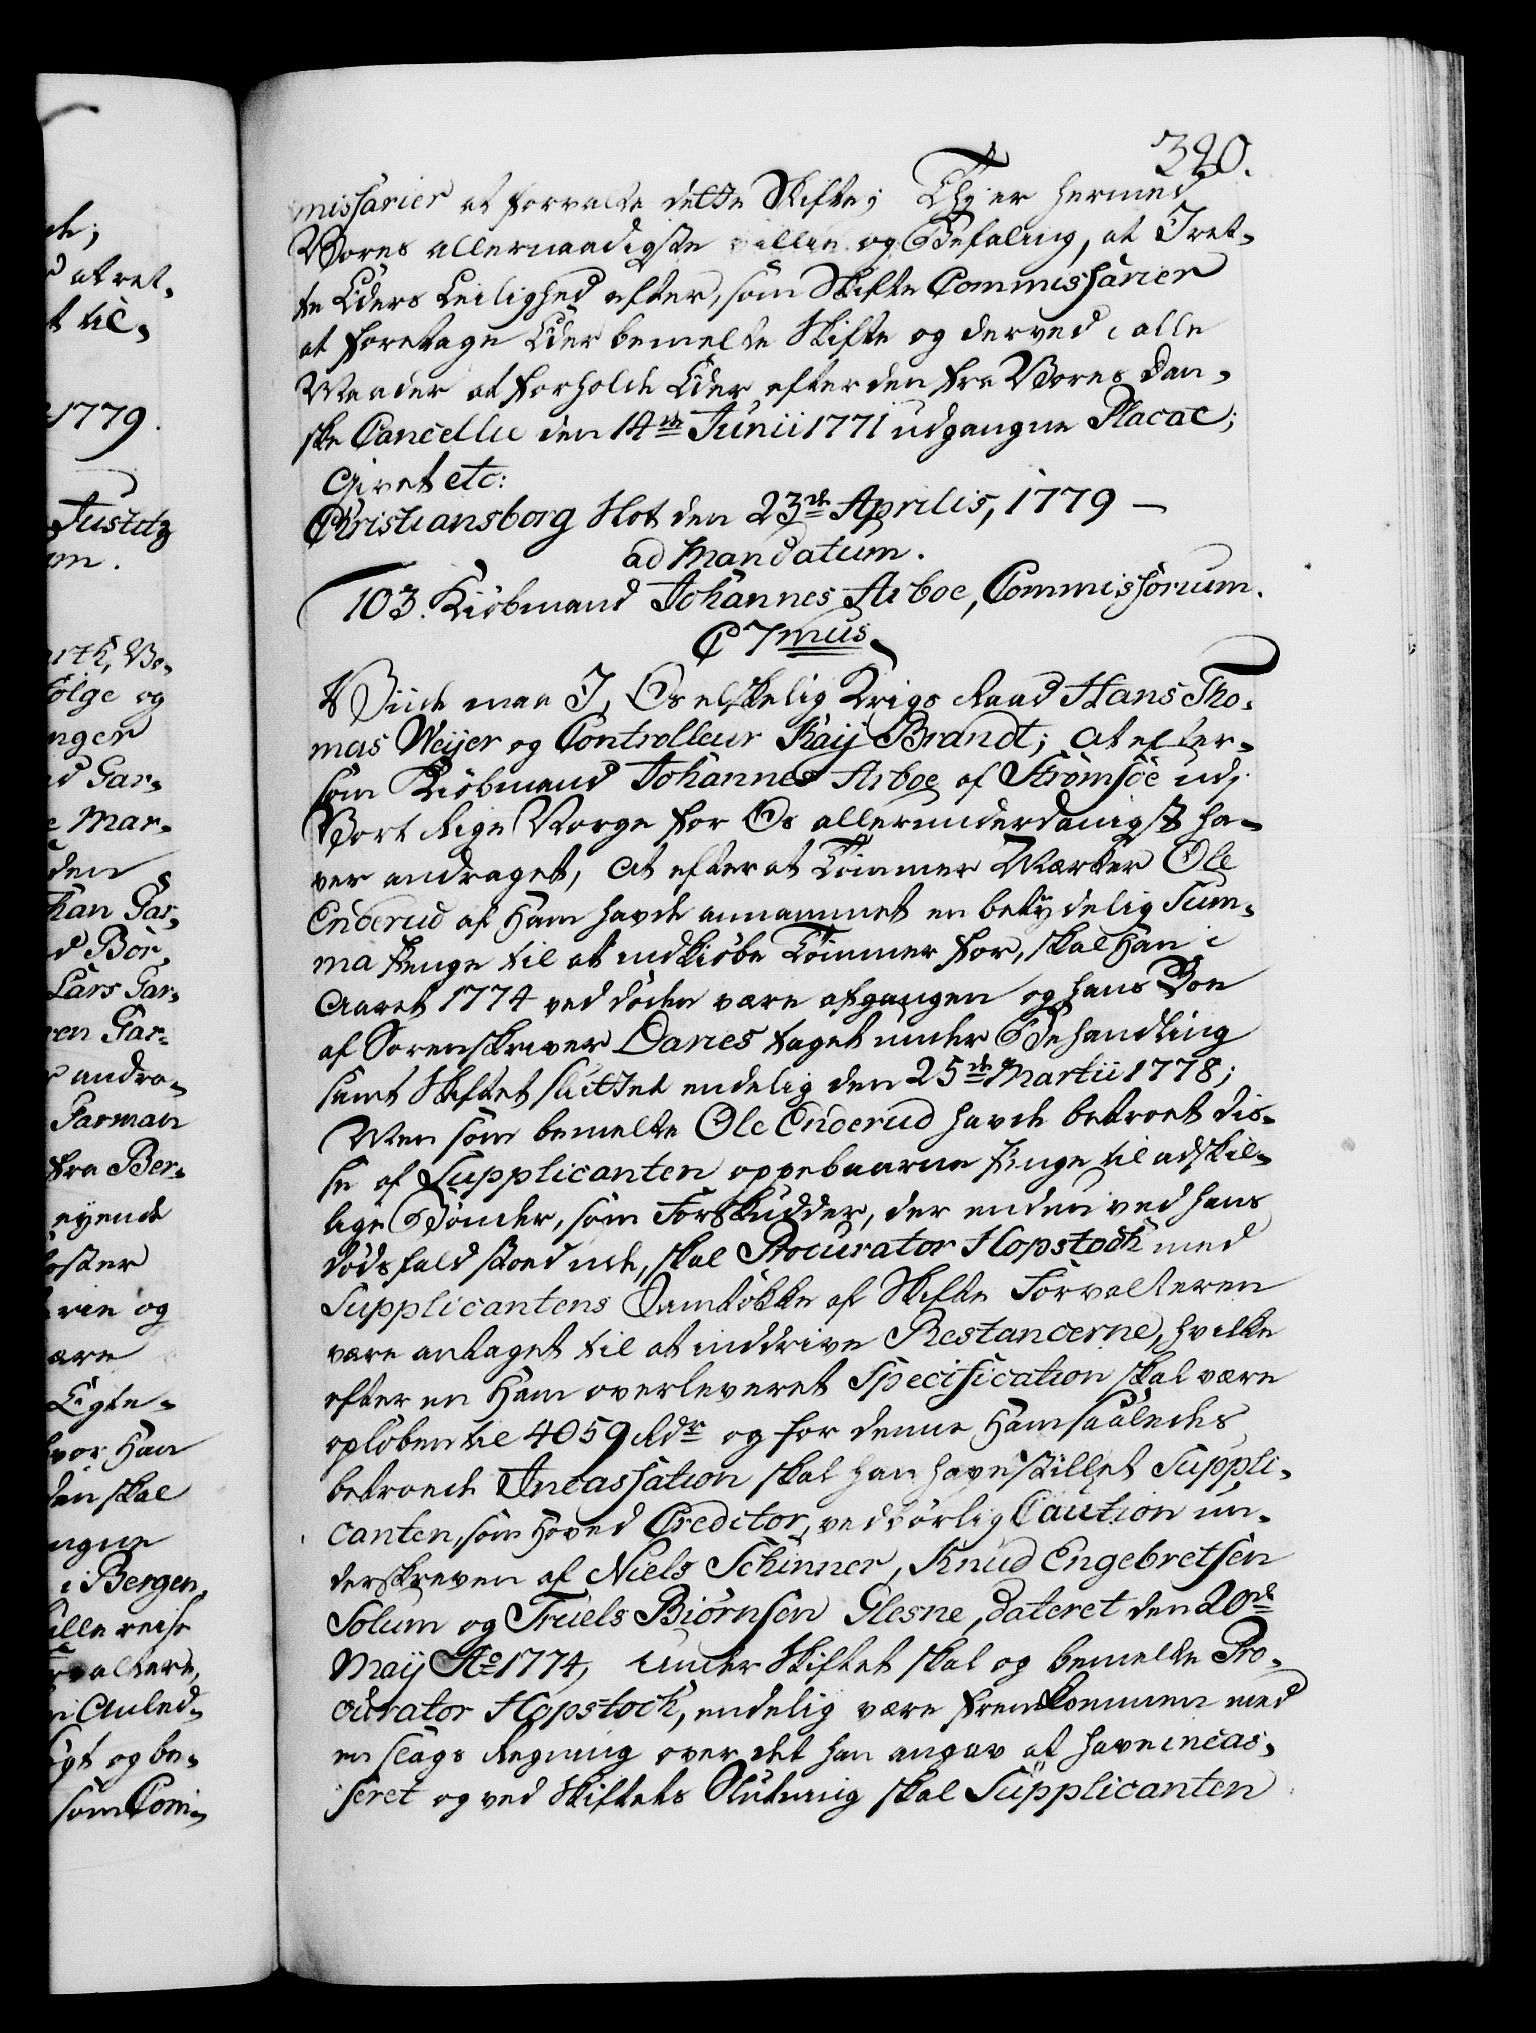 320.
missarier at forvalte dette Skifte; Thj er hermed
Vores allernaadigste villie og Befaling, at I ret-
te Eders Leilighed efter, som Skifte Commissarier
at foretage Eder bemelte Skifte og derved i alle
Maader at forholde Eder efter den fra Vores Dan-
ske Cancellie den 14de Junii 1771 udgangne Placat;
Givet etc:
Christiansborg Slot den 23de Aprilis, 1779 —
ad Mandatum.
103. Kiöbmand Johannes Arboe, Commissorum.
C 7mus
Viide maa I, Os elskelig Krigs Raad Hans Tho-
mas Weyer og Controlleur Kaÿ Brandt; at efter-
som Kiöbmand Johannes Arboe af Strömsöe udj
Vort Rige Norge for Os allerunderdanigst ha-
ver andraget, at efter at Tömmer Mærker Ole
Enderud af Ham havde annammet en betydelig Sum-
ma Penge til at indkiöbe Tömmer for, skal Han i
Aaret 1774 ved döden være afgangen og hans Boe
af Sorenskriver Danes taget under Behandling
samt Skiftet sluttet endelig den 25de Martii 1778;
Men som bemelte Ole Enderud havde betroet dis-
se af Supplicanten oppebaarne Penge til adskil-
lige Bönder, som Forskudder, der endnu ved hans
dödsfald stoed ude, skal Procurator Hopstock med
Supplicantens Samtökke af Skifte Forvalteren
være antaget til at inddrive Restancerne, hvilke
efter en Ham overleveret Specification skal være
oplöben til 4059 Rdr og for denne Ham saaledes
betroede Incassation skal han have stillet Suppli-
canten, som Hoved Creditor, vedbörlig Caution un-
derskreven af Niels Schinner, Knud Engebretsen
Solum og Truels Biörnsen Glesne, dateret den 20de
Maij Ao 1774, under Skiftet skal og bemelte Pro-
curator Hopstock, endelig være fremkommen med
en slags Regning over det han angav at have incas-
seret og ved Skiftets Slutning skal Supplicanten